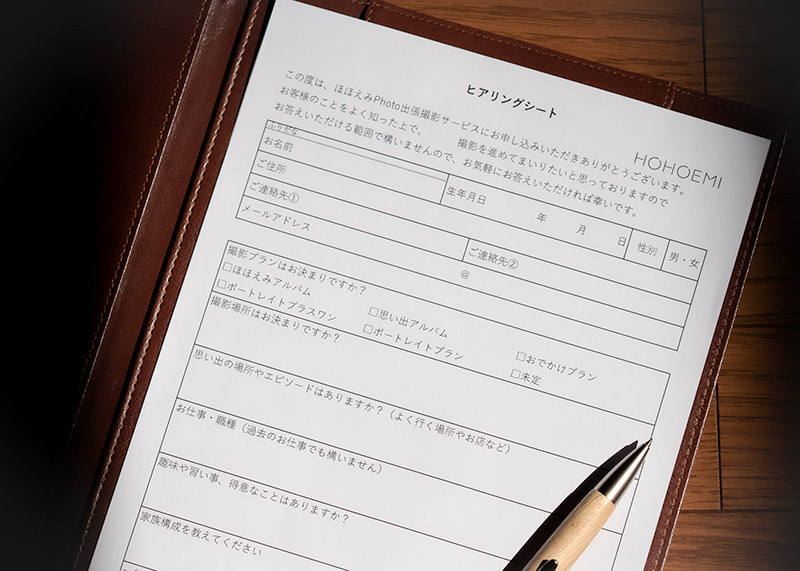 ヒアリングシート
HOHOEMI
この度は、ほほえみPhoto出張撮影サービスにお申し込みいただきありがとうございます。
お客様のことをよく知った上で、 撮影を進めてまいりたいと思っておりますので
お答えいただける範囲で構いませんので、お気軽にお答えいただければ幸いです。
ふりがな
お名前
生年月日 年 月 日 性別 男・女
ご住所
ご連絡先① ご連絡先②
メールアドレス @
撮影プランはお決まりですか?
□ほほえみアルバム □思い出アルバム □おでかけプラン
□ポートレイトプラスワン □ポートレイトプラン □未定
撮影場所はお決まりですか?
思い出の場所やエピソードはありますか?(よく行く場所やお店など)
お仕事・職種(過去のお仕事でも構いません)
趣味や習い事、得意なことはありますか?
家族構成を教えてください